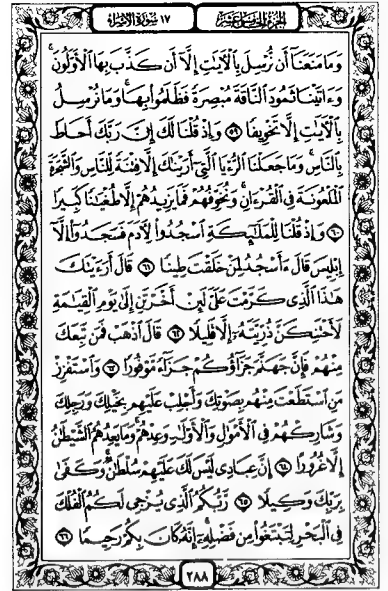 الجزء الخامس عشر
١٧ سورة الإسراء
وَمَا مَنَعَنَآ أَن نُّرْسِلَ بِٱلْأٓيَٰتِ إِلَّآ أَن كَذَّبَ بِهَا ٱلْأَوَّلُونَ ۚ
وَءَاتَيْنَا ثَمُودَ ٱلنَّاقَةَ مُبْصِرَةً فَظَلَمُوا۟ بِهَا ۚ وَمَا نُرْسِلُ
بِٱلْأٓيَٰتِ إِلَّا تَخْوِيفًا ٥٩ وَإِذْ قُلْنَا لَكَ إِنَّ رَبَّكَ أَحَاطَ
بِٱلنَّاسِ ۚ وَمَا جَعَلْنَا ٱلرُّءْيَا ٱلَّتِىٓ أَرَيْنَٰكَ إِلَّا فِتْنَةً لِّلنَّاسِ وَٱلشَّجَرَةَ
ٱلْمَلْعُونَةَ فِى ٱلْقُرْءَانِ ۚ وَنُخَوِّفُهُمْ فَمَا يَزِيدُهُمْ إِلَّا طُغْيَٰنًا كَبِيرًا
٦٠ وَإِذْ قُلْنَا لِلْمَلَٰٓئِكَةِ ٱسْجُدُوا۟ لِأٓدَمَ فَسَجَدُوٓا۟ إِلَّآ
إِبْلِيسَ قَالَ ءَأَسْجُدُ لِمَنْ خَلَقْتَ طِينًا ٦١ قَالَ أَرَءَيْتَكَ
هَٰذَا ٱلَّذِى كَرَّمْتَ عَلَىَّ لَئِنْ أَخَّرْتَنِ إِلَىٰ يَوْمِ ٱلْقِيَٰمَةِ
لَأَحْتَنِكَنَّ ذُرِّيَّتَهُۥٓ إِلَّا قَلِيلًا ٦٢ قَالَ ٱذْهَبْ فَمَن تَبِعَكَ
مِنْهُمْ فَإِنَّ جَهَنَّمَ جَزَآؤُكُمْ جَزَآءً مَّوْفُورًا ٦٣ وَٱسْتَفْزِزْ
مَنِ ٱسْتَطَعْتَ مِنْهُم بِصَوْتِكَ وَأَجْلِبْ عَلَيْهِم بِخَيْلِكَ وَرَجِلِكَ
وَشَارِكْهُمْ فِى ٱلْأَمْوَٰلِ وَٱلْأَوْلَٰدِ وَعِدْهُمْ ۚ وَمَا يَعِدُهُمُ ٱلشَّيْطَٰنُ
إِلَّا غُرُورًا ٦٤ إِنَّ عِبَادِى لَيْسَ لَكَ عَلَيْهِمْ سُلْطَٰنٌ ۚ وَكَفَىٰ
بِرَبِّكَ وَكِيلًا ٦٥ رَّبُّكُمُ ٱلَّذِى يُزْجِى لَكُمُ ٱلْفُلْكَ
فِى ٱلْبَحْرِ لِتَبْتَغُوا۟ مِن فَضْلِهِۦٓ ۚ إِنَّهُۥ كَانَ بِكُمْ رَحِيمًا ٦٦
٢٨٨